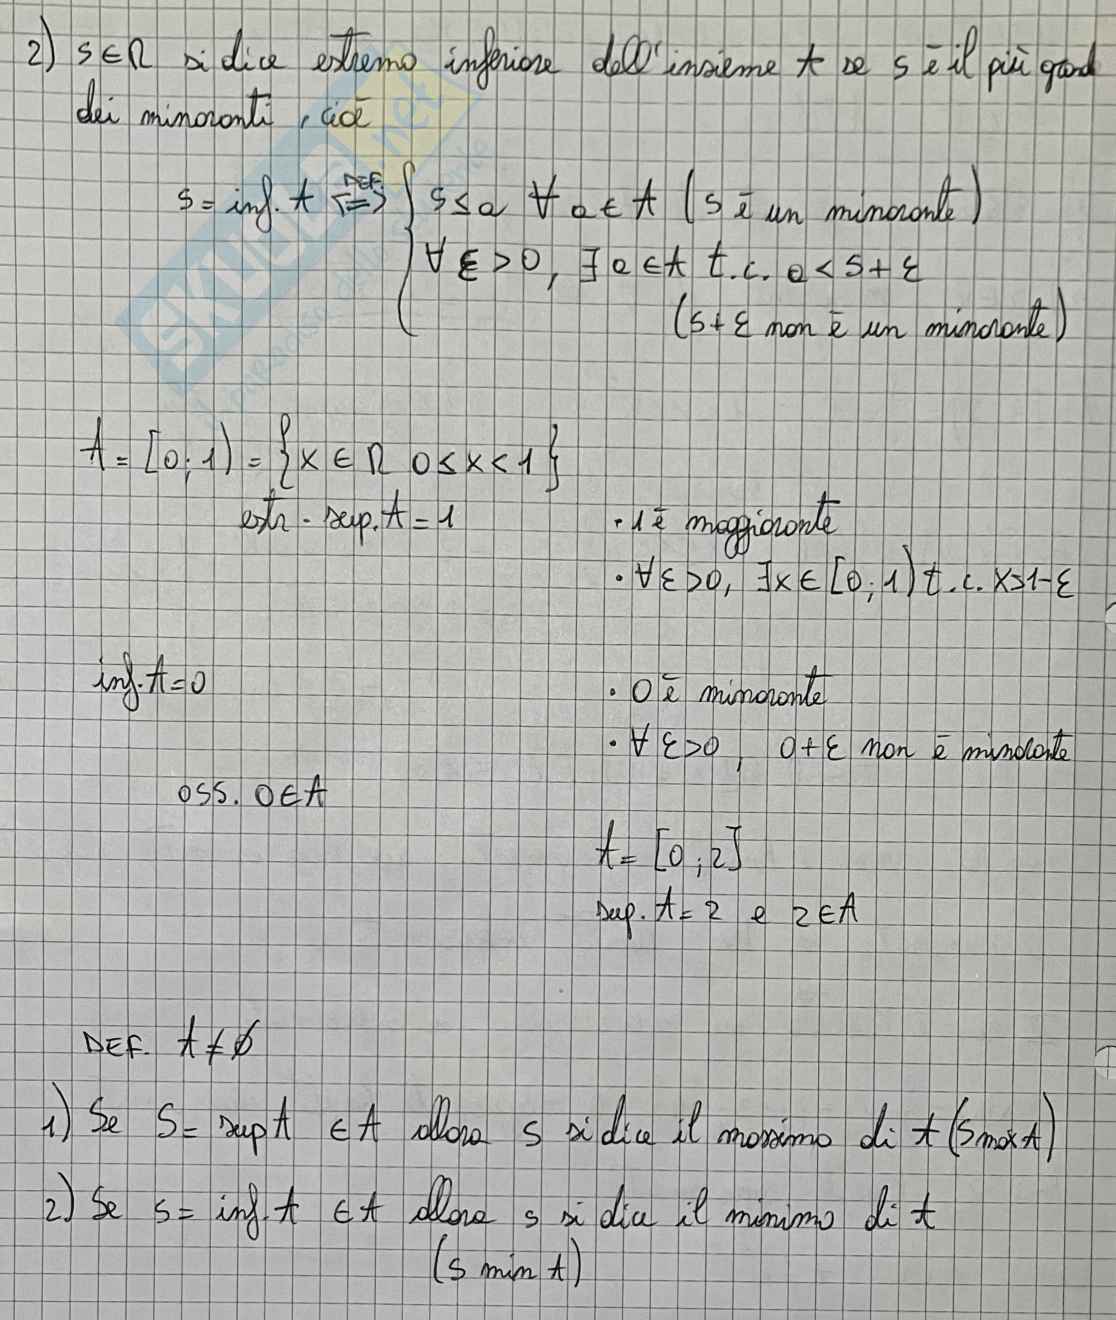 2) s∈R si dice estremo inferiore dell'insieme A se s è il più grand
dei minoranti, cioè
s = inf. A ⟺ DEF. { s ≤ a ∀ a ∈ A (s è un minorante)
∀ ε > 0, ∃ a ∈ A t.c. a < s + ε
(s + ε non è un minorante)
A = [0; 1) = {x ∈ R 0 ≤ x < 1}
estr. sup. A = 1
· 1 è maggiorante
· ∀ ε > 0, ∃ x ∈ [0; 1) t.c. x > 1 - ε
inf. A = 0
· 0 è minorante
· ∀ ε > 0, 0 + ε non è minorante
OSS. 0 ∈ A
A = [0; 2]
sup. A = 2 e 2 ∈ A
DEF. A ≠ ∅
1) Se S = sup A ∈ A allora s si dice il massimo di A (s max A)
2) Se s = inf. A ∈ A allora s si dice il minimo di A
(s min A)
SKUOLA.net